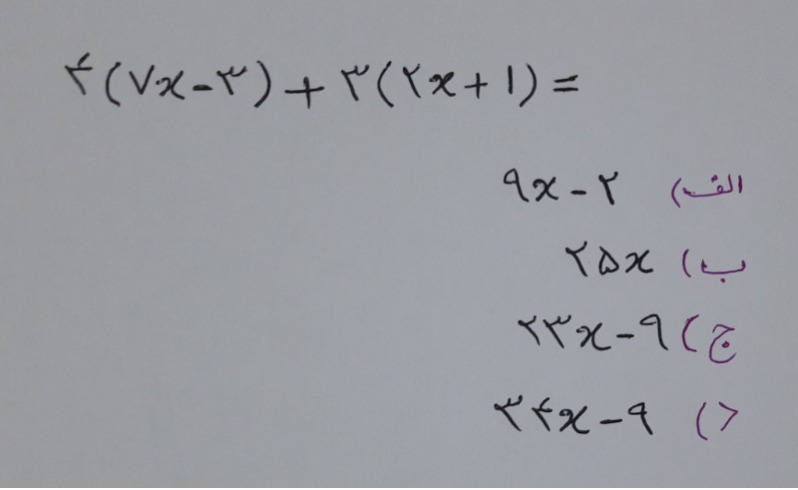 ۴(۷x-۳)+۳(۲x+۱)=
الف) ۹x-۲
ب) ۲۵x
ج) ۲۳x-۹
د) ۳۴x-۹